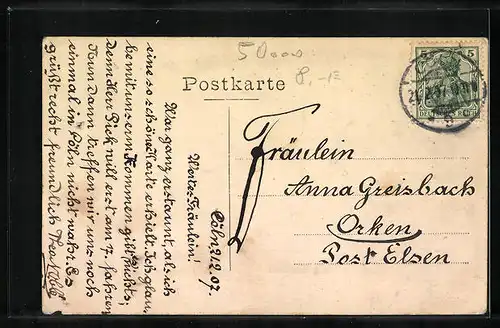 5000
8,-E
Postkarte
5 5
Fräulein
Anna Greisbach
Orken
Post Elsen
Cöln 2.12.07.
Wertes Fräulein!
War ganz erstaunt, als ich
eine so schöne Karte erhielt. Ich glau-
be mit unserm Kommen gibt's nichts,
denn Herr Pick will erst am 7. fahren
Nun dann treffen wir uns noch
einmal in Cöln nicht wahr. Es
grüßt recht freundlich Thea